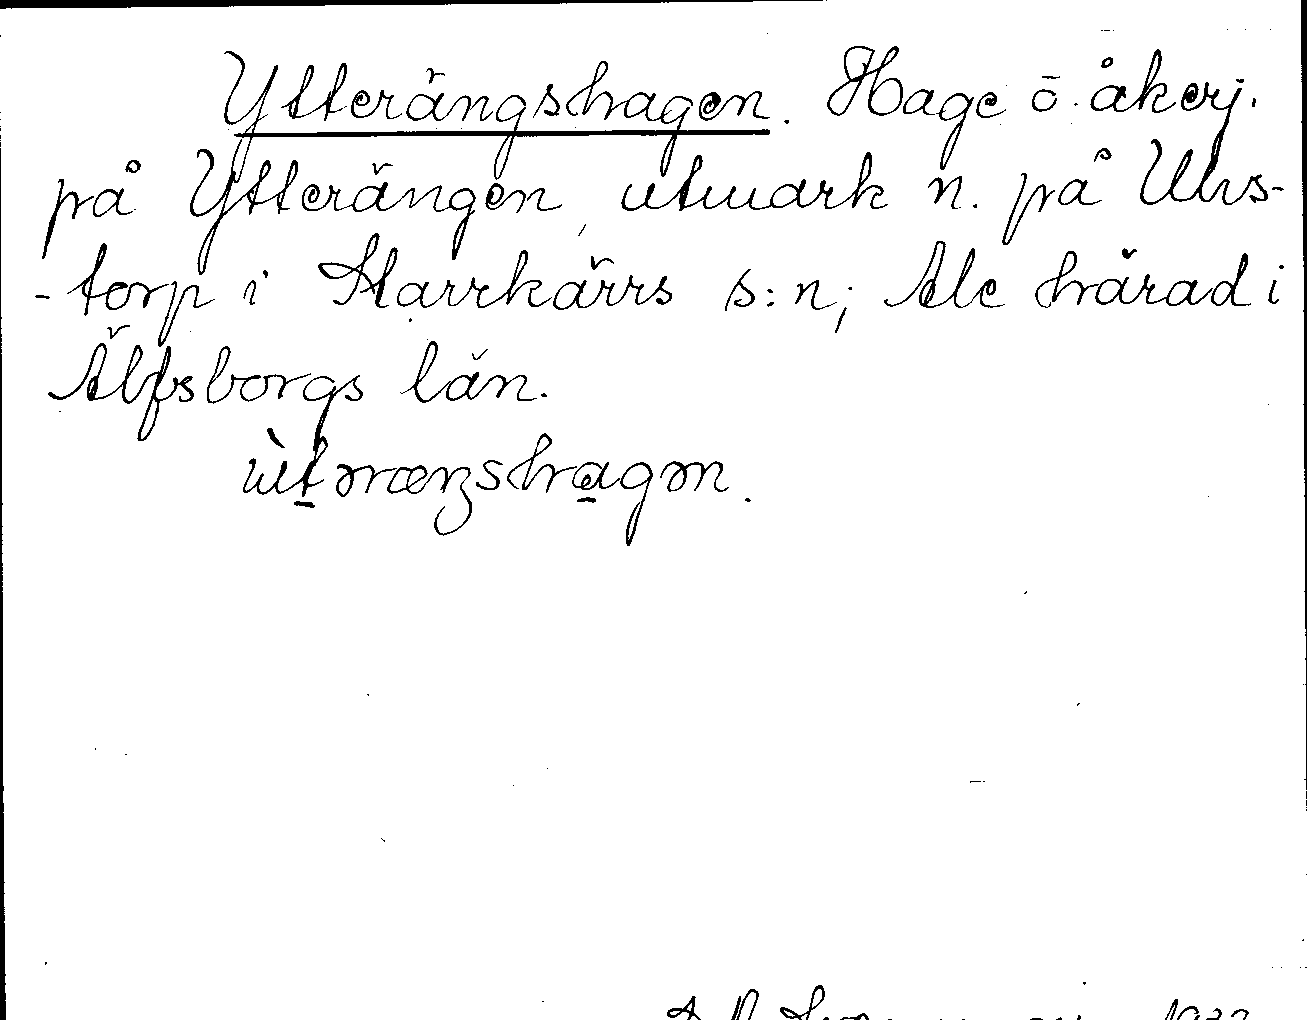 Ytterängshagen. Hage ō. åkerj.
på Ytterängen, utmark n. på Uhrs-
-torp i Starrkärrs s:n; Ale härad i
Älfsborgs län.